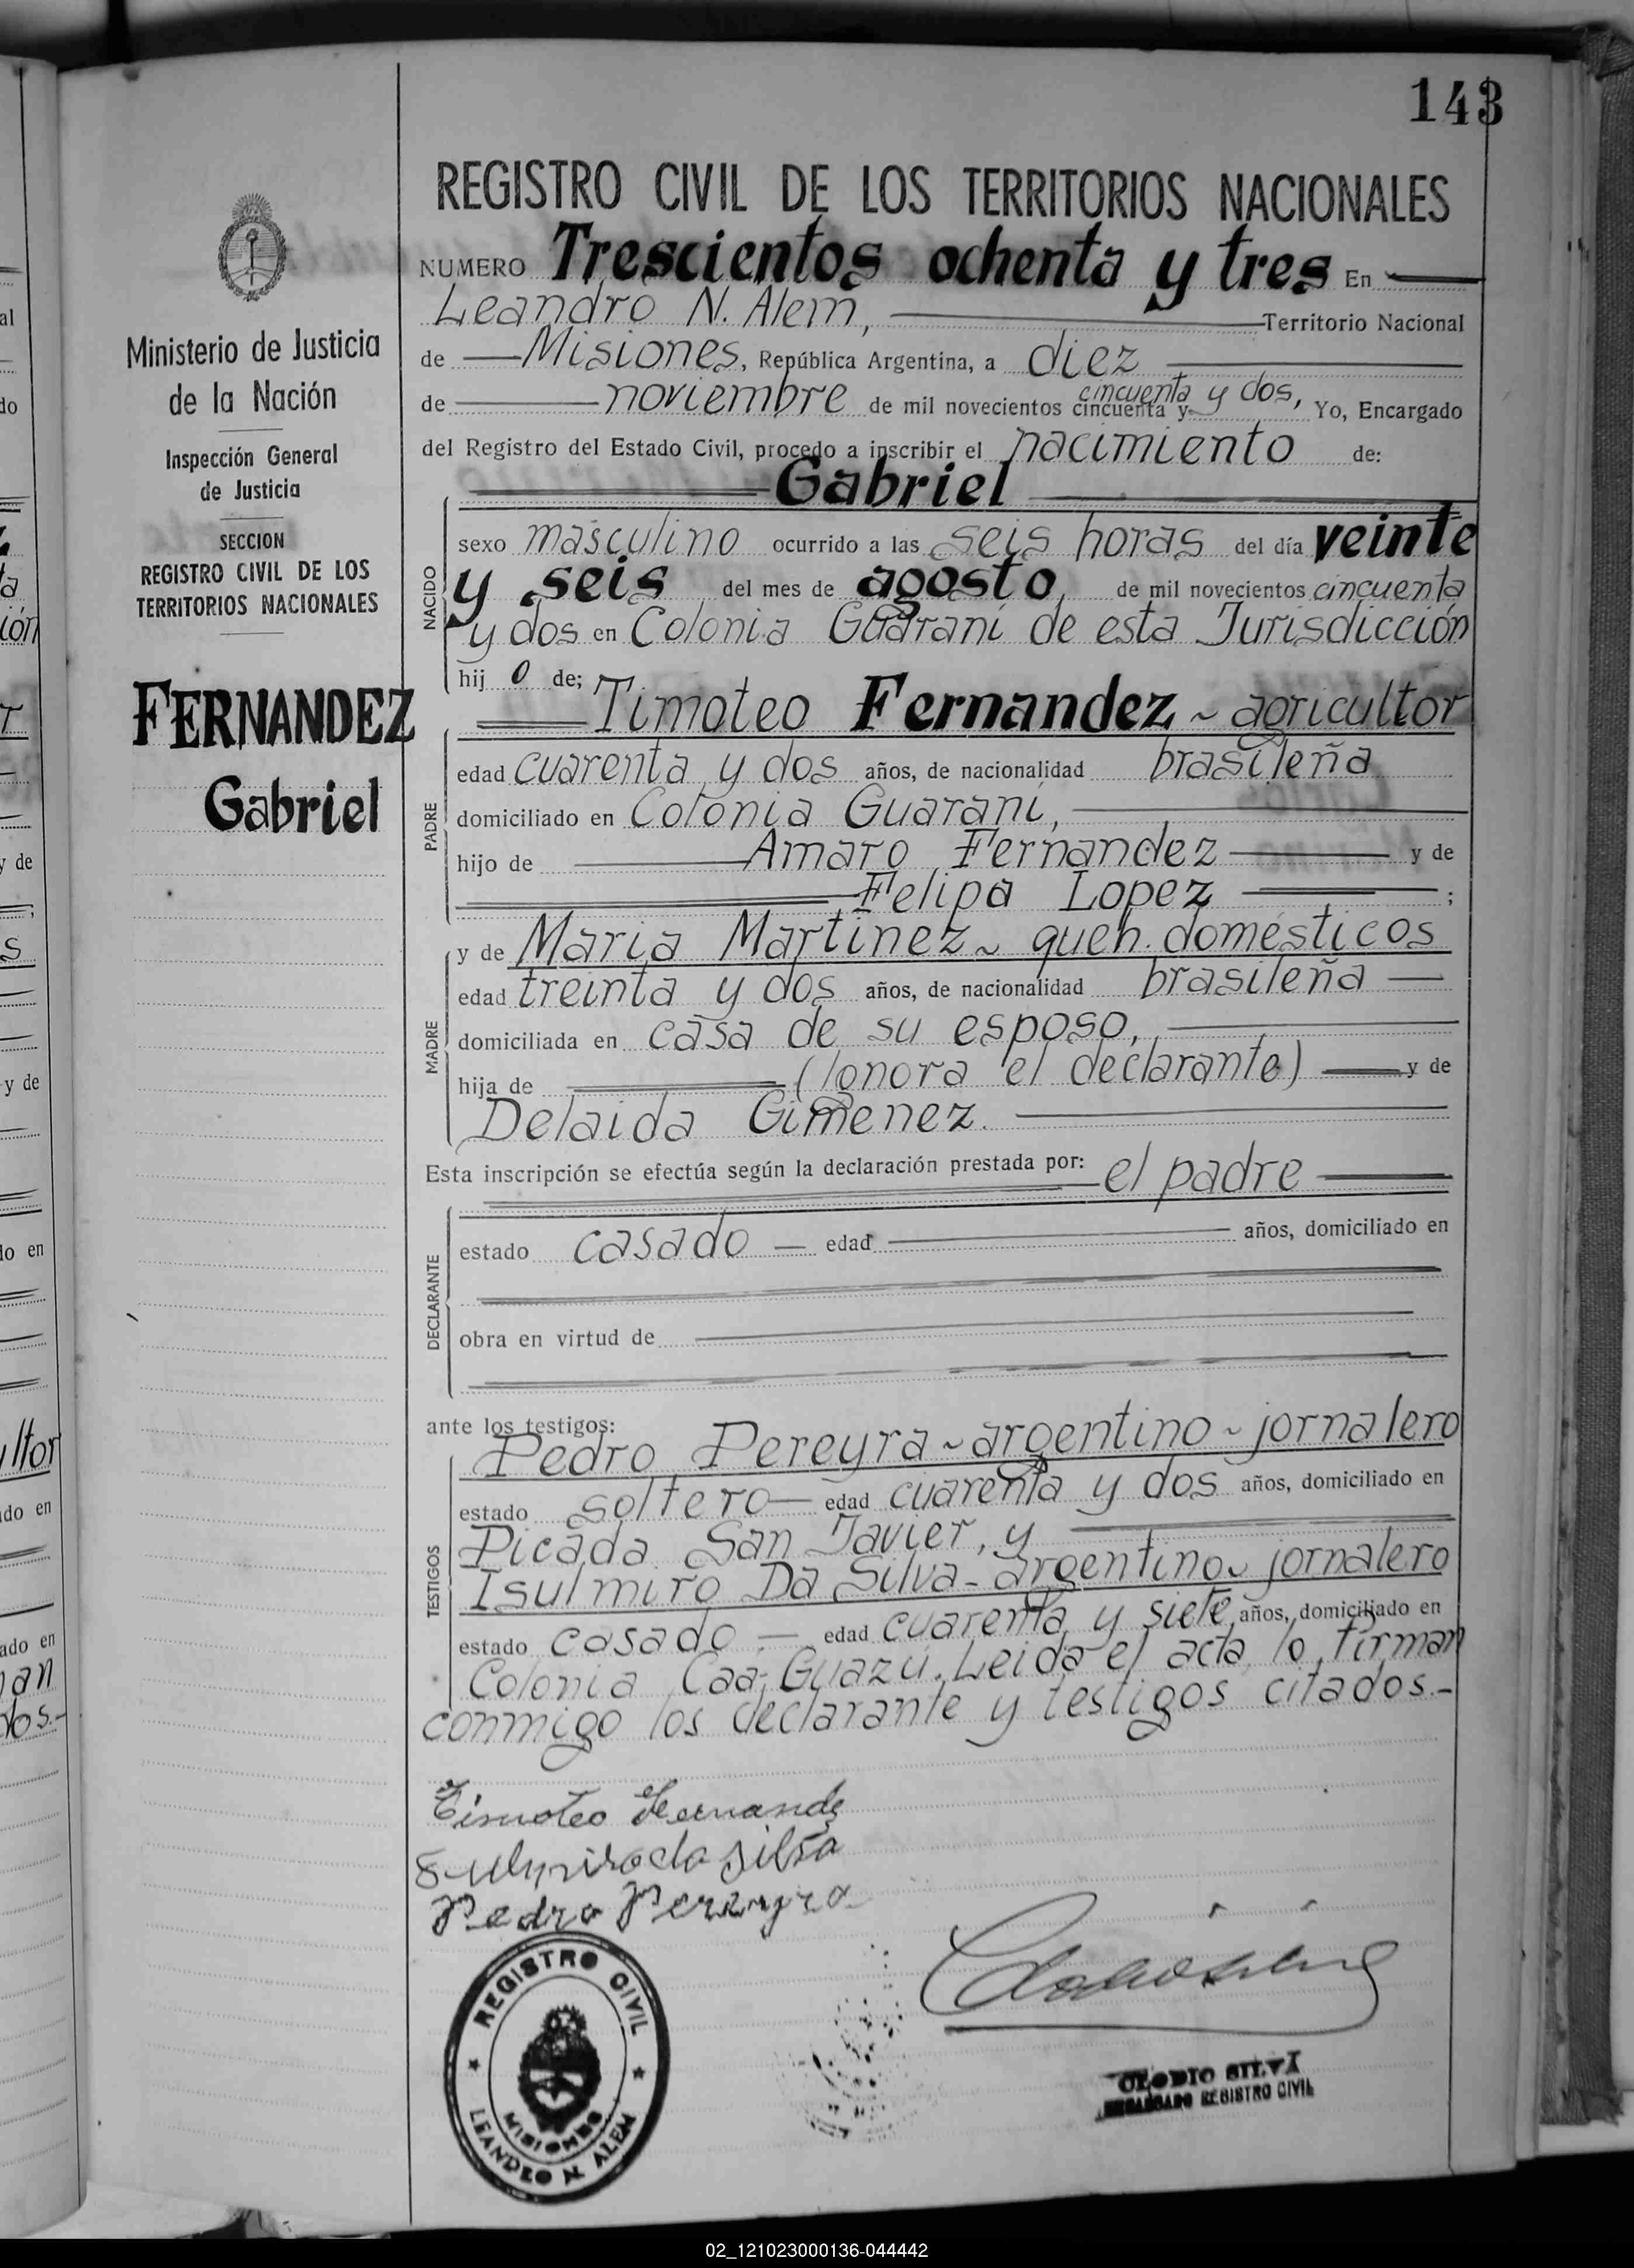 143
REGISTRO CIVIL DE LOS TERRITORIOS NACIONALES
NUMERO Trescientos ochenta y tres En
Leandro N. Alem, Territorio Nacional
de Misiones, República Argentina, a diez
de noviembre de mil novecientos cincuenta y cincuenta y dos, Yo, Encargado
del Registro del Estado Civil, procedo a inscribir el nacimiento de:
Gabriel
sexo masculino ocurrido a las seis horas del día veinte
y seis del mes de agosto, de mil novecientos cincuenta
y dos en Colonia Guaraní de esta Jurisdicción
hij o de;
Timoteo Fernandez ~ agricultor
edad cuarenta y dos años, de nacionalidad brasileña
domiciliado en Colonia Guaraní,
hijo de Amaro Fernandez y de
Felipa Lopez ;
y de Maria Martinez ~ queh. domésticos
edad treinta y dos años, de nacionalidad brasileña
domiciliada en casa de su esposo,
hija de (Ignora el declarante) y de
Delaida Gimenez.
Esta inscripción se efectúa según la declaración prestada por: el padre
estado casado — edad años, domiciliado en
obra en virtud de
ante los testigos:
Pedro Pereyra ~ argentino ~ jornalero
estado soltero — edad cuarenta y dos años, domiciliado en
Picada San Javier, y
Isulmiro Da Silva - argentino ~ jornalero
estado casado — edad cuarenta y siete años, domiciliado en
Colonia Caa-Guazú. Leida el acta lo firman
conmigo los declarante y testigos citados.-
NACIDO
PADRE
MADRE
DECLARANTE
TESTIGOS
Ministerio de Justicia
de la Nación
Inspección General
de Justicia
SECCION
REGISTRO CIVIL DE LOS
TERRITORIOS NACIONALES
FERNANDEZ
Gabriel
Timoteo Fernande
da Silva
Pedro Pereyra
REGISTRO CIVIL
MISIONES
LEANDRO N. ALEM
CLODIO SILVA
ENCARGADO REGISTRO CIVIL
02_121023000136-044442